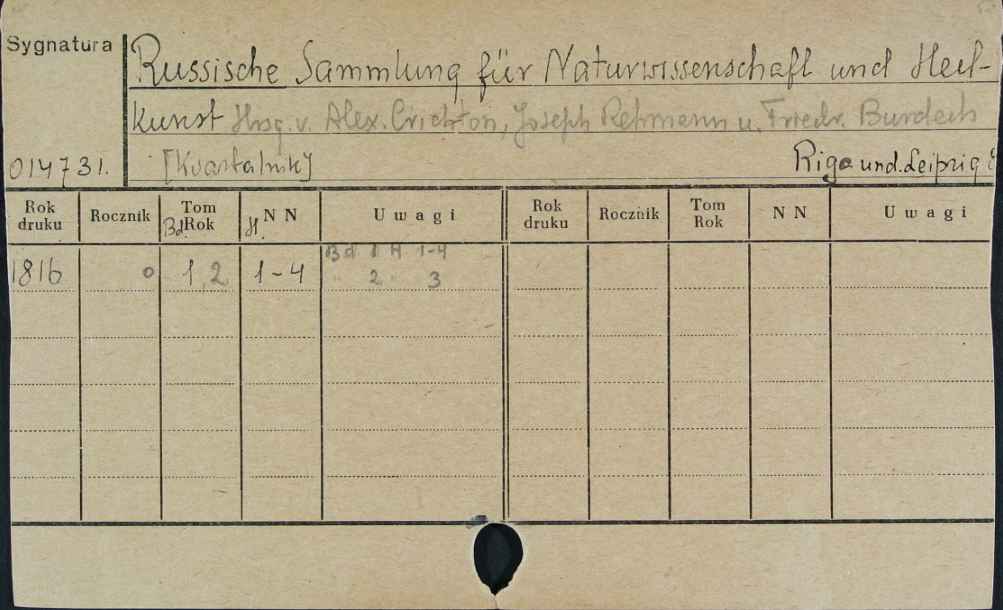 Sygnatura
Russische Sammlung für Naturwissenschaft und Heil-
kunst Hrsg. v. Alex. Crichton, Joseph Rehmann u. Friedr. Burdach
014731. [Kwartalnik] Riga und Leipzig
Rok druku Rocznik Tom Rok Bd N N H. Uwagi Rok druku Rocznik Tom Rok N N Uwagi
Bd 1 H 1-4
1816 0 1, 2 1-4 " 2 " 3